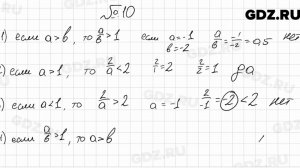 GDZ.RU
№10
1) если a>b, то a/b>1 если a=-1 b=-2 a/b=-1/-2=0,5 нет
) если a>1, то 2/a<2 2/1=2 2/2=1 да
) если a<1, то 2/a>2 a=-1 2/-1=-2<2 нет
) если a/b>1, то a>b
GDZ.RU